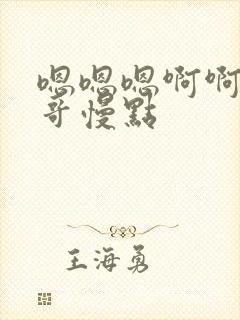 嗯嗯嗯啊啊
哥慢點
王海勇